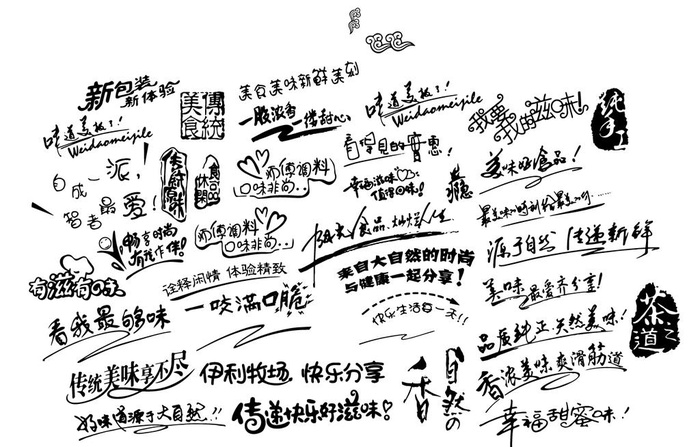 新包装
新体验
傳統
美食
美食美味新鲜美刻
一股浓香
一偿甜心
味道美极了!
Weidaomeijile
味道美极了!
Weidaomeijile
我要
我要滋味!
纯手工
看得见的实惠!
自成一派!
智者最爱!
休閒
食品
师傅调料
口味非尚...
幸福滋味
值得回味!
美味好食品!
畅享时尚
有我作伴!
师傅调料
口味非尚...
阳光食品.灿烂人生
源于自然 传递新鲜
有滋有味
诠释闲情 体验精致
来自大自然的时尚
与健康一起分享!
美味最爱齐分享!
看我最够味
一咬满口脆
快乐生活每一天!!
品质纯正天然美味!
茶之道
传统美味享不尽
伊利牧场 快乐分享
自然の香
香浓美味爽滑筋道
好味道源于大自然!!
传递快乐好滋味!
幸福甜蜜味!